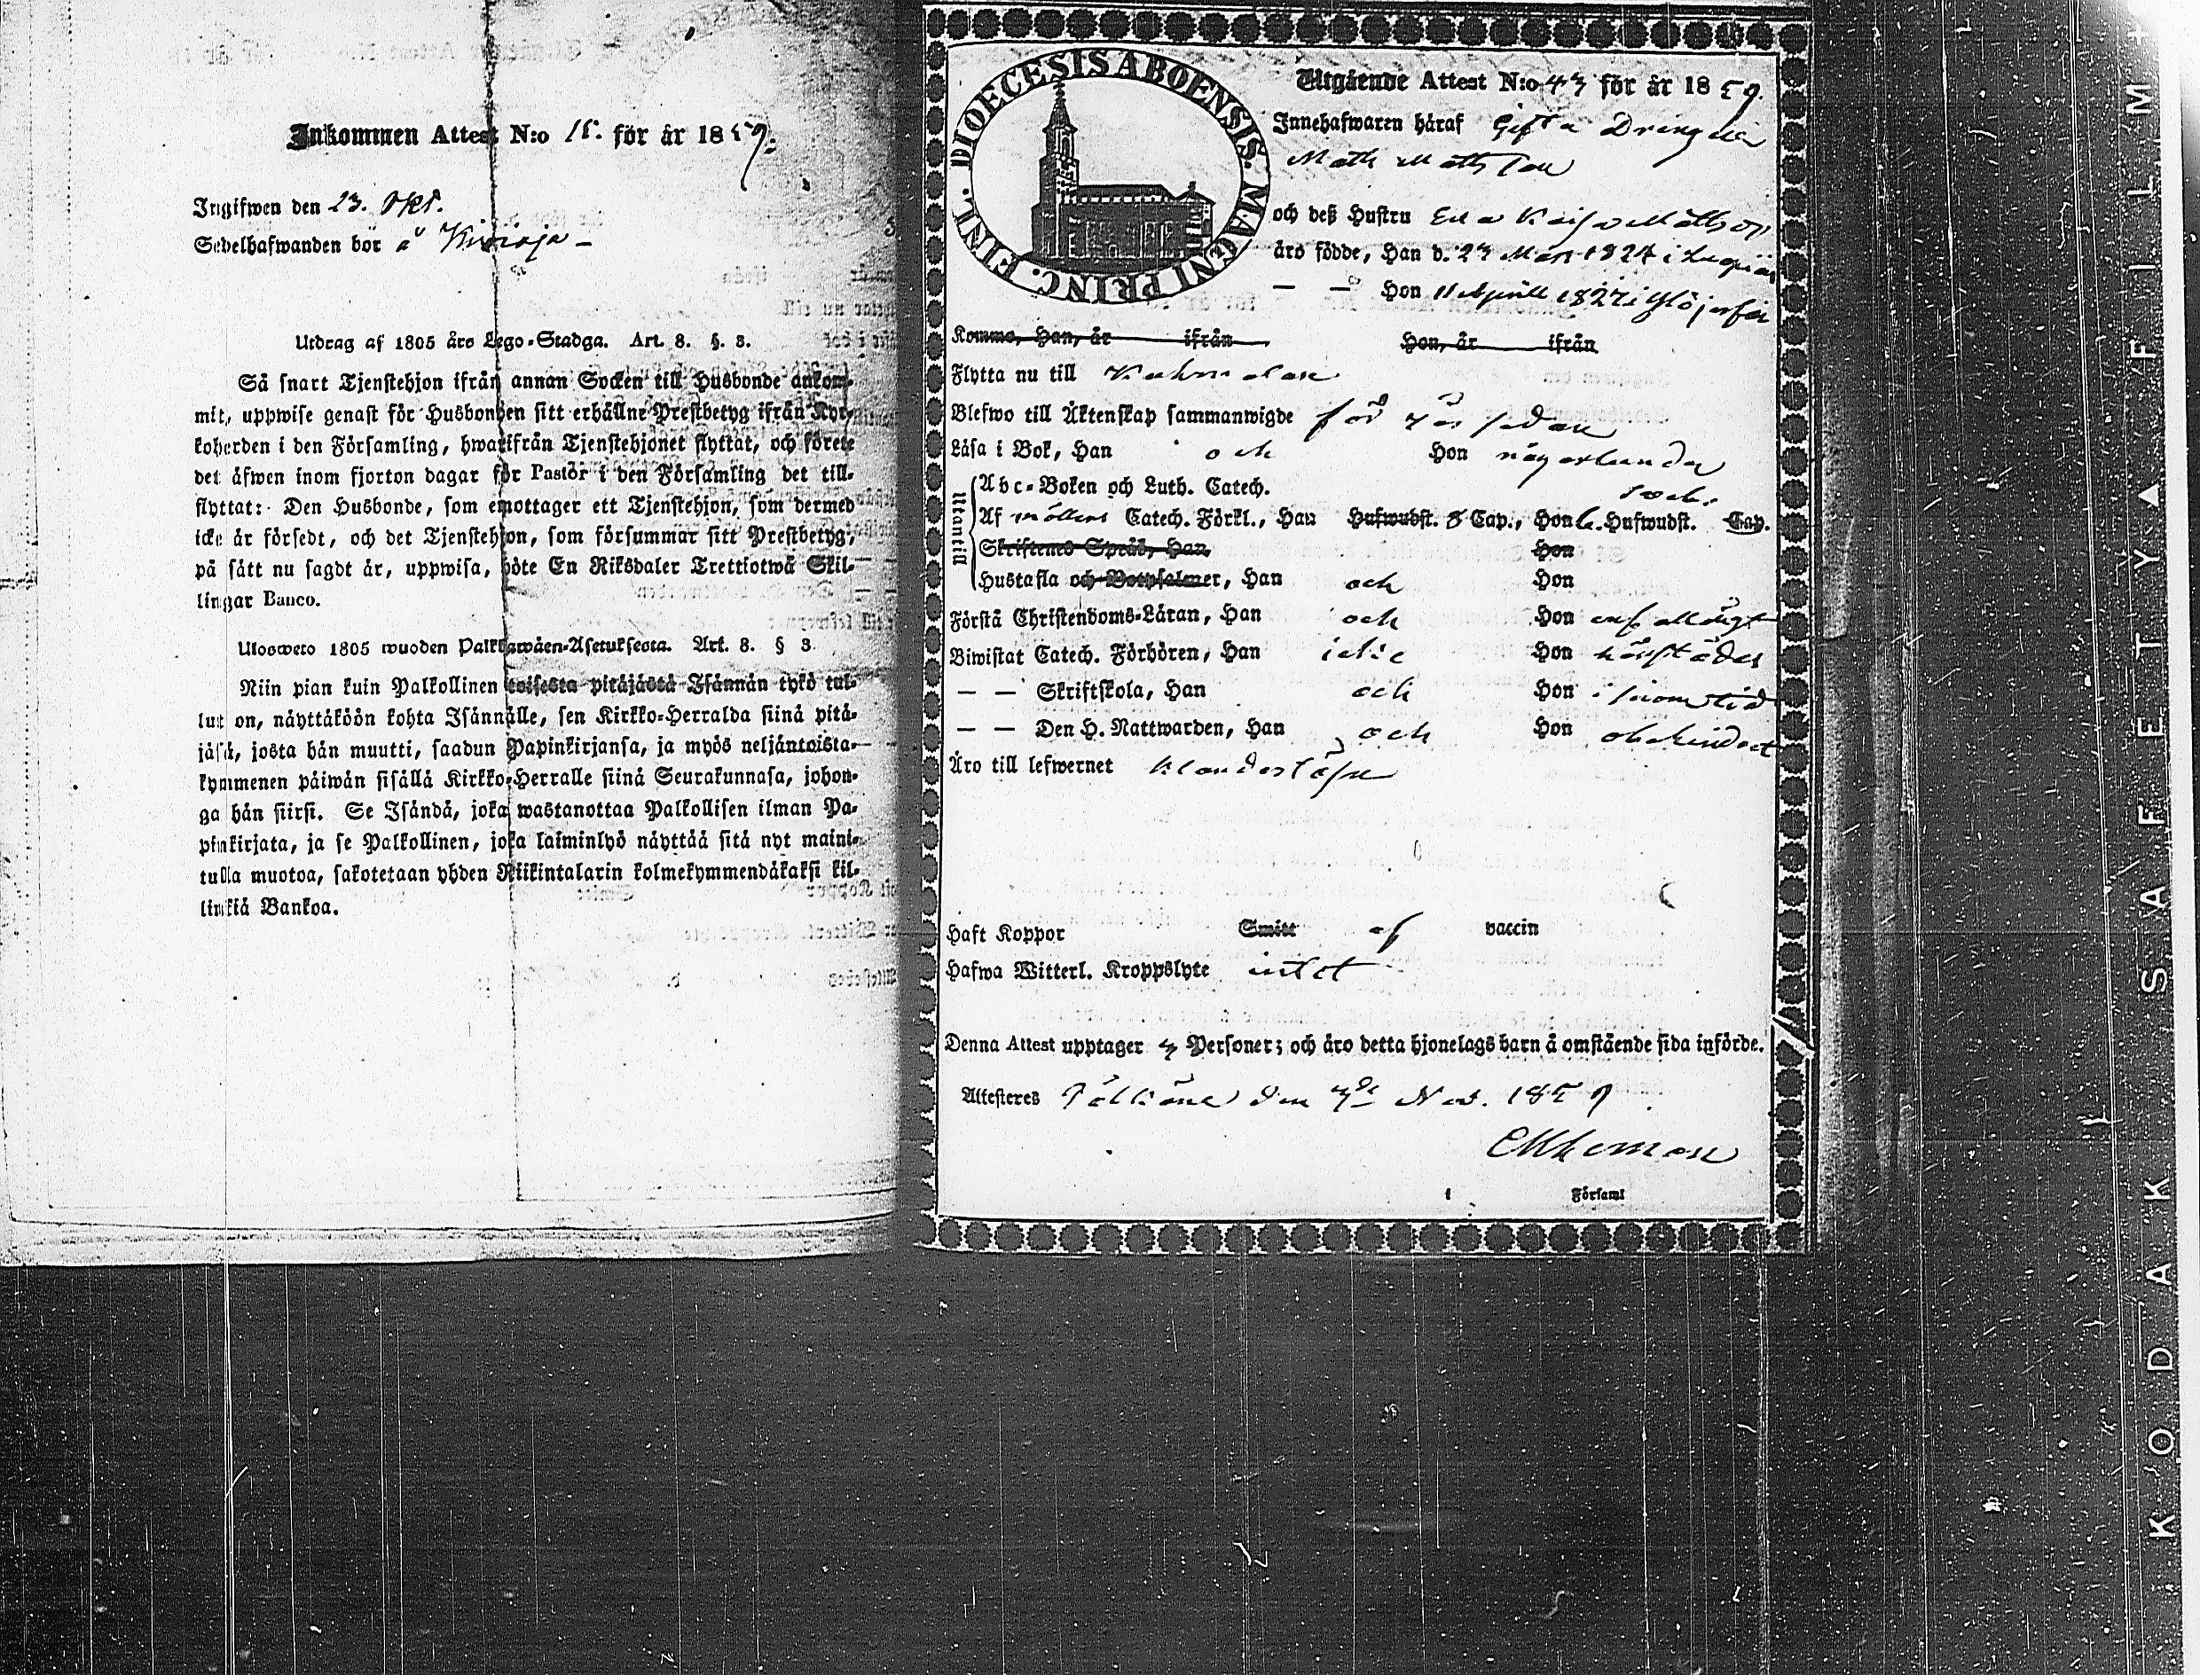 Inkommen Attest N:o 15. för år 1859.
Ingifwen den 23. Okt.
Sedelhafwanden bor å
Utdrag af 1805 års Lego-Stadga. Art. 8. §. 3.
Så snart Tjenstehjon ifrån annan Socken till Husbonde ankom-
mit, uppwise genast för Husbonden sitt erhållne Prestbetyg ifrån Kyr-
koherden i den Församling, hwarifrån Tjenstehjonet flyttat, och förete
det äfwen inom fjorton dagar för Pastor i den Församling det till-
flyttat: Den Husbonde, som emottager ett Tjenstehjon, som dermed
icke är försedt, och det Tjenstehjon, som försummar sitt Prestbetyg,
på sätt nu sagdt är, uppwisa, böte En Riksdaler Trettiotwå Skil-
lingar Banco.
Ulosweto 1805 wuoden Palkkawäen-Asetuksesta. Art. 8. § 3.
Niin pian kuin Palkollinen toisesta pitäjästä Isännän tykö tul-
lut on, näyttäköön kohta Isännälle, sen Kirkko-Herralda siinä pitä-
jäsä, josta hän muutti, saadun Papinkirjansa, ja myös neljäntoista-
kymmenen päiwän sisällä Kirkko-Herralle siinä Seurakunnasa, johon-
ga hän siirsi. Se Isändä, joka wastanottaa Palkollisen ilman Pa-
pinkirjata, ja se Palkollinen, joka laiminlyö näyttää sitä nyt maini-
tulla muotoa, sakotetaan yhden Riikintalarin kolmekymmendäkaksi kil-
linkiä Bankoa.
DIOECESIS ABOENSIS. MAGNI PRINC. FINL.
Utgående Attest N:o 43 för år 1859.
Innehafwaren häraf Gifta Drängen
Math Matts son
och deß Hustru Eva Kaisa Mattsdr
äro födde, Han d. 23 Mars 1824 i
— — Hon 11 Aprill 1827 i
Komme, Han, år ifrån Hon, år ifrån
Flytta nu till Kuhmalax
Blefwo till Äktenskap sammanwigde för år sedan
Läsa i Bok, Han och Hon någorlunda
Utantill
Abc-Boken och Luth. Catech.
Af möllers Catech. Förkl., Han Hufwudst. 8 Cap., Hon Hufwudst. Cap.
Skriftenes Språk, Han Hon
Hustafla och Botpsalmer, Han och Hon
Förstå Christendoms-Läran, Han och Hon
Biwistat Catech. Förhören, Han icke Hon
— — Skriftskola, Han och Hon i sinom tid
— — Den H. Nattwarden, Han och Hon obehindrat
Äro till lefwernet klanderlöse
Haft Koppor Smitt af vaccin
Hafwa Witterl. Kroppslyte intet
Denna Attest upptager Personer; och äro detta hjonelags barn å omstående sida införde.
Attesteres Pälkäne den Nov. 1859
i Församl
KODAK SAFETY ▲ FILM